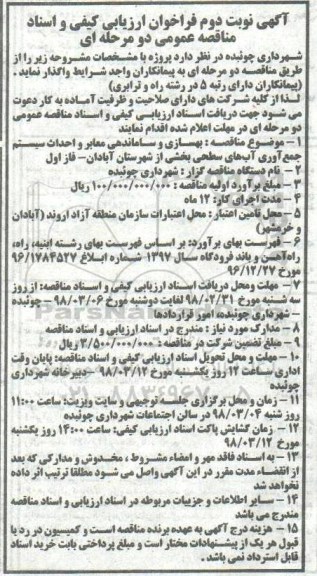 آگهی نوبت دوم فراخوان ارزیابی کیفی و اسناد
مناقصه عمومی دو مرحله ای
شهرداری چوئبده در نظر دارد پروژه با مشخصات مشروحه زیر را از
طریق مناقصه دو مرحله ای به پیمانکاران واجد شرایط واگذار نماید .
(پیمانکاران دارای رتبه ۵ در رشته راه و ترابری)
لذا از کلیه شرکت های دارای صلاحیت و ظرفیت آماده به کار دعوت
می شود جهت دریافت اسناد ارزیابی کیفی و اسناد مناقصه عمومی
دو مرحله ای در مهلت اعلام شده اقدام نمایند
۱- موضوع مناقصه : بهسازی و ساماندهی معابر و احداث سیستم
جمع آوری آب‌های سطحی بخشی از شهرستان آبادان- فاز اول
۲- نام دستگاه مناقصه گزار : شهرداری چوئبده
۳- مبلغ برآورد اولیه مناقصه : ۱۰۰/۰۰۰/۰۰۰/۰۰۰ ریال
۴- مدت اجرای کار: ۱۲ ماه
۵- محل تامین اعتبار : محل اعتبارات سازمان منطقه آزاد اروند (آبادان
و خرمشهر)
۶- فهرست بهای برآورد: بر اساس فهرست بهای رشته ابنیه، راه،
راه‌آهن و باند فرودگاه سال ۱۳۹۷ شماره ابلاغ ۹۶/۱۷۸۴۵۲۷
مورخ ۹۶/۱۲/۲۷
۷- مهلت ومحل دریافت اسناد ارزیابی کیفی و اسناد مناقصه: از روز
سه شنبه مورخ ۹۸/۰۲/۳۱ لغایت دوشنبه مورخ ۹۸/۰۳/۰۶ – چوئبده
– شهرداری چوئبده، امور قراردادها
۸- مدارک مورد نیاز : مندرج در اسناد ارزیابی و اسناد مناقصه
۹- مبلغ تضمین شرکت در مناقصه : ۳/۵۰۰/۰۰۰/۰۰۰ ریال
۱۰- مهلت و محل تحویل اسناد ارزیابی کیفی و اسناد مناقصه: پایان وقت
اداری ساعت ۱۲ روز یکشنبه مورخ ۹۸/۰۳/۱۲ – دبیرخانه شهرداری
چوئبده
۱۱- زمان و محل برگزاری جلسه توجیهی و سایت ویزیت: ساعت ۱۱:۰۰
روز شنبه ۹۸/۰۳/۰۴ در سالن اجتماعات شهرداری چوئبده
۱۲- زمان گشایش پاکت اسناد ارزیابی کیفی: ساعت ۱۴:۰۰ روز یکشنبه
مورخ ۹۸/۰۳/۱۲
۱۳- به اسناد فاقد مهر و امضاء مشروط ، مخدوش و مدارکی که بعد
از انقضاء مدت مقرر در این آگهی واصل می شود مطلقا ترتیب اثر داده
نخواهد شد
۱۴- سایر اطلاعات و جزییات مربوطه در اسناد ارزیابی و اسناد مناقصه
مندرج می باشد
۱۵- هزینه درج آگهی به عهده برنده مناقصه است و کمیسیون در رد یا
قبول هر یک از پیشنهادات مختار است و مبلغ پرداختی بابت خرید اسناد
قابل استرداد نمی باشد .